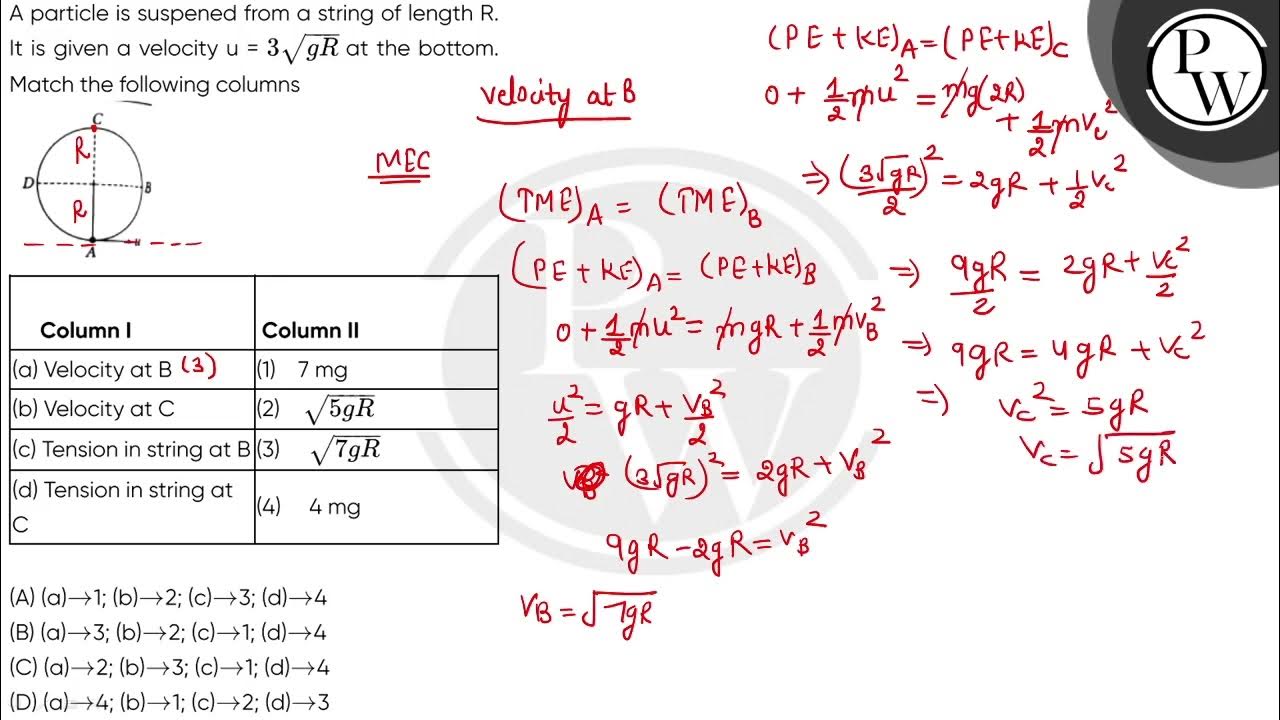 A particle is suspened from a string of length R.
It is given a velocity u = 3√gR at the bottom.
Match the following columns
C
R
D
B
R
u
A
Column I Column II
(a) Velocity at B (3) (1) 7 mg
(b) Velocity at C (2) √5gR
(c) Tension in string at B (3) √7gR
(d) Tension in string at C (4) 4 mg
(A) (a)→1; (b)→2; (c)→3; (d)→4
(B) (a)→3; (b)→2; (c)→1; (d)→4
(C) (a)→2; (b)→3; (c)→1; (d)→4
(D) (a)→4; (b)→1; (c)→2; (d)→3
MEC
velocity at B
(TME)A = (TME)B
(PE + KE)A = (PE+KE)B
0 + 1/2 mu² = mgR + 1/2 mvB²
u²/2 = gR + VB²/2
(3√gR)² = 2gR + VB²
9gR - 2gR = VB²
VB = √7gR
(PE + KE)A = (PE+KE)C
0 + 1/2 mu² = mg(2R) + 1/2 mvc²
⇒ (3√gR)²/2 = 2gR + 1/2 vc²
⇒ 9gR/2 = 2gR + vc²/2
⇒ 9gR = 4gR + vc²
⇒ vc² = 5gR
vc = √5gR
P
W
P
W